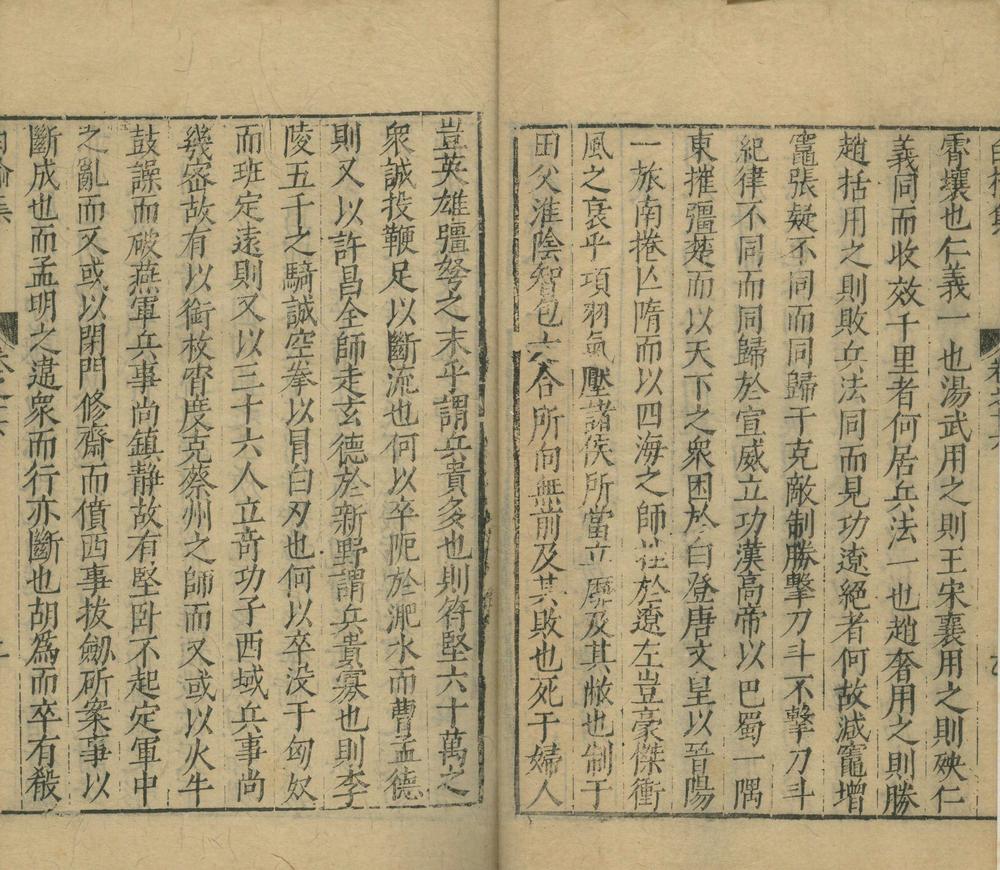 霄壤也仁義一也湯武用之則王宋襄用之則殃仁
義同而收效千里者何居兵法一也趙奢用之則勝
趙括用之則敗兵法同而見功遼絕者何故減竈增
竈張疑不同而同歸于克敵制勝擊刀斗不擊刀斗
紀律不同而同歸於宣威立功漢高帝以巴蜀一隅
東摧彊楚而以天下之衆困於白登唐文皇以晉陽
一旅南捲亾隋而以四海之師衂於遼左豈豪傑衝
風之衰乎項羽氣壓諸侯所當立靡及其敝也制于
田父淮陰智包六合所向無前及其敗也死于婦人
豈英雄彊弩之末乎謂兵貴多也則符堅六十萬之
衆誠投鞭足以斷流也何以卒阨於淝水而曹孟德
則又以許昌全師走玄德於新野謂兵貴寡也則李
陵五千之騎誠空拳以冒白刃也何以卒没于匈奴
而班定遠則又以三十六人立奇功于西域兵事尚
幾密故有以銜枚宵度克蔡州之師而又或以火牛
鼓譟而破燕軍兵事尚鎮靜故有堅卧不起定軍中
之亂而又或以閉門修齋而僨西事拔劒斫案事以
斷成也而孟明之違衆而行亦斷也胡爲而卒有殺